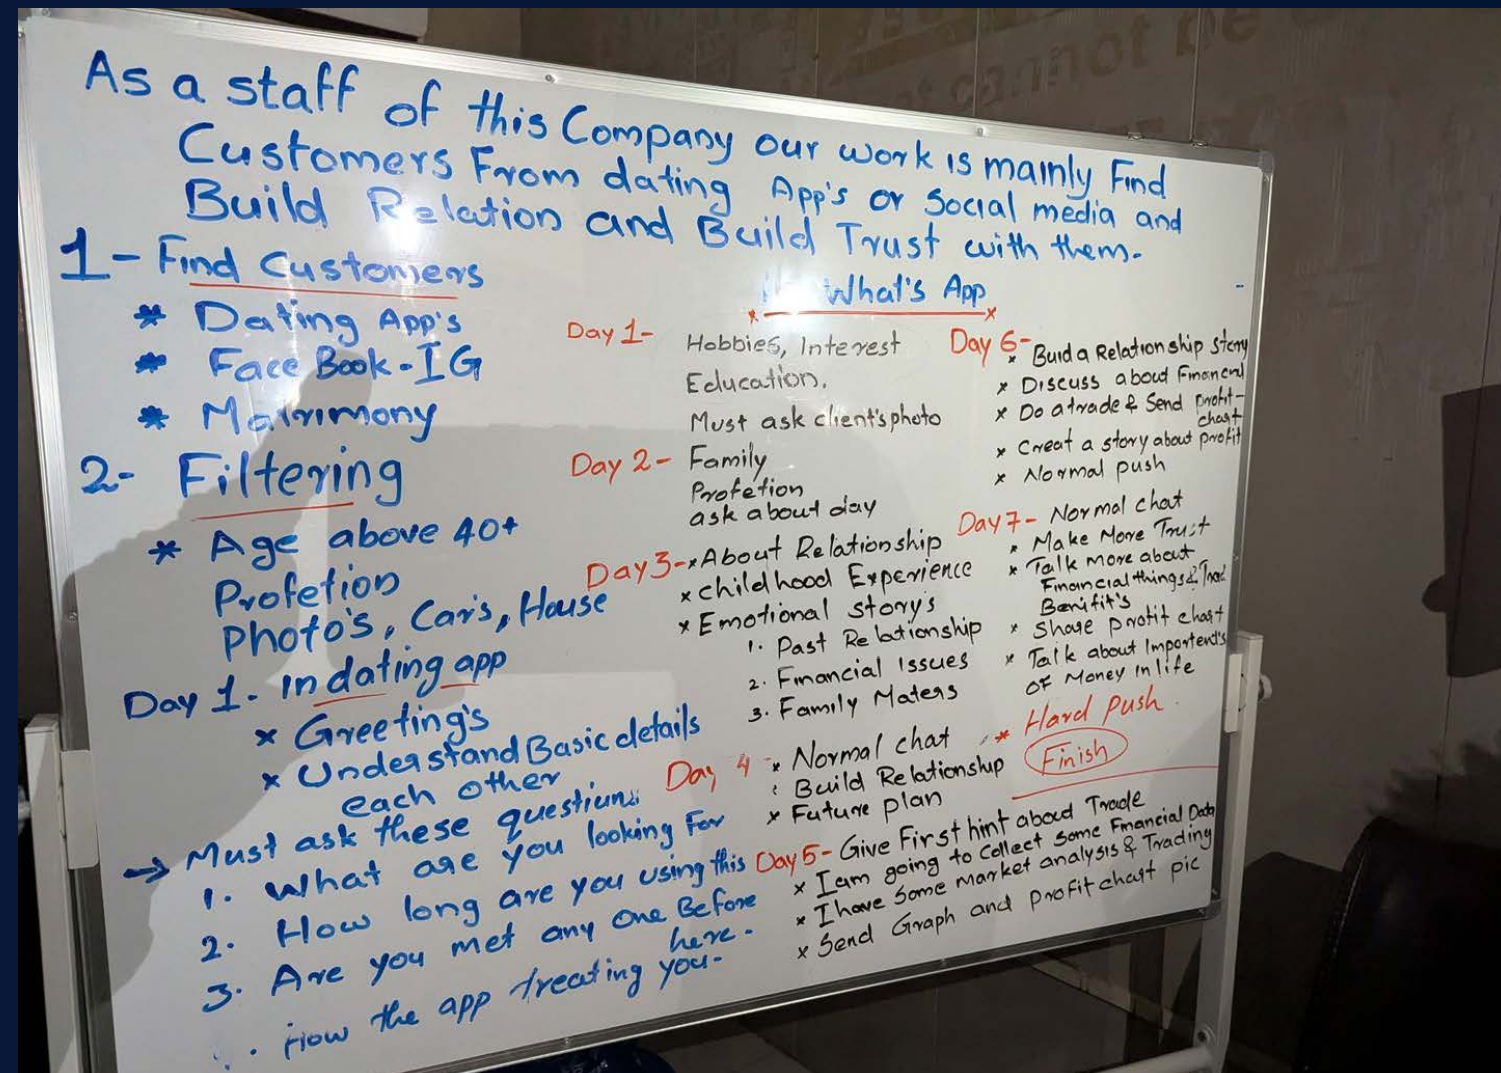 As a staff of this Company our work is mainly Find
Customers From dating App's or Social media and
Build Relation and Build Trust with them.
1- Find Customers
* Dating App's
* Face Book - IG
* Matrimony
2- Filtering
* Age above 40+
Profetion
Photo's, Car's, House
Day 1. In dating app
x Greeting's
x Understand Basic details
each other
→ Must ask these question:
1. What are you looking For
2. How long are you using this
3. Are you met any one Before
here.
How the app treating you-
What's App
Day 1- Hobbies, Interest
Education.
Must ask client's photo
Day 2- Family
Profetion
ask about day
Day 3- x About Relationship
x childhood Experience
x Emotional story's
1. Past Relationship
2. Financial Issues
3. Family Maters
Day 4 x Normal chat
Build Relationship
x Future plan
Day 5- Give First hint about Trade
x I am going to Collect Some Financial Data
x I have Some market analysis & Trading
x Send Graph and profit chart pic
Day 6-
x Buid a Relationship story
x Discuss about Financial
x Do a trade & Send profit-
chart
x Creat a story about profit
x Normal push
Day 7- Normal chat
x Make More Trust
x Talk more about
Financial things &
Benifit's
x Share profit chart
x Talk about Importend's
OF Money In life
* Hard push.
Finish